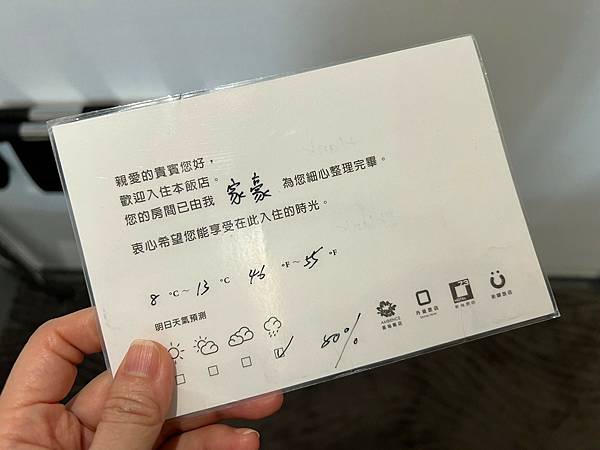 親愛的貴賓您好，
歡迎入住本飯店。
您的房間已由我 家豪 為您細心整理完畢。
衷心希望您能享受在此入住的時光。
8 °C ~ 13 °C 46 °F ~ 55 °F
明日天氣預測
80%
AMBIENCE